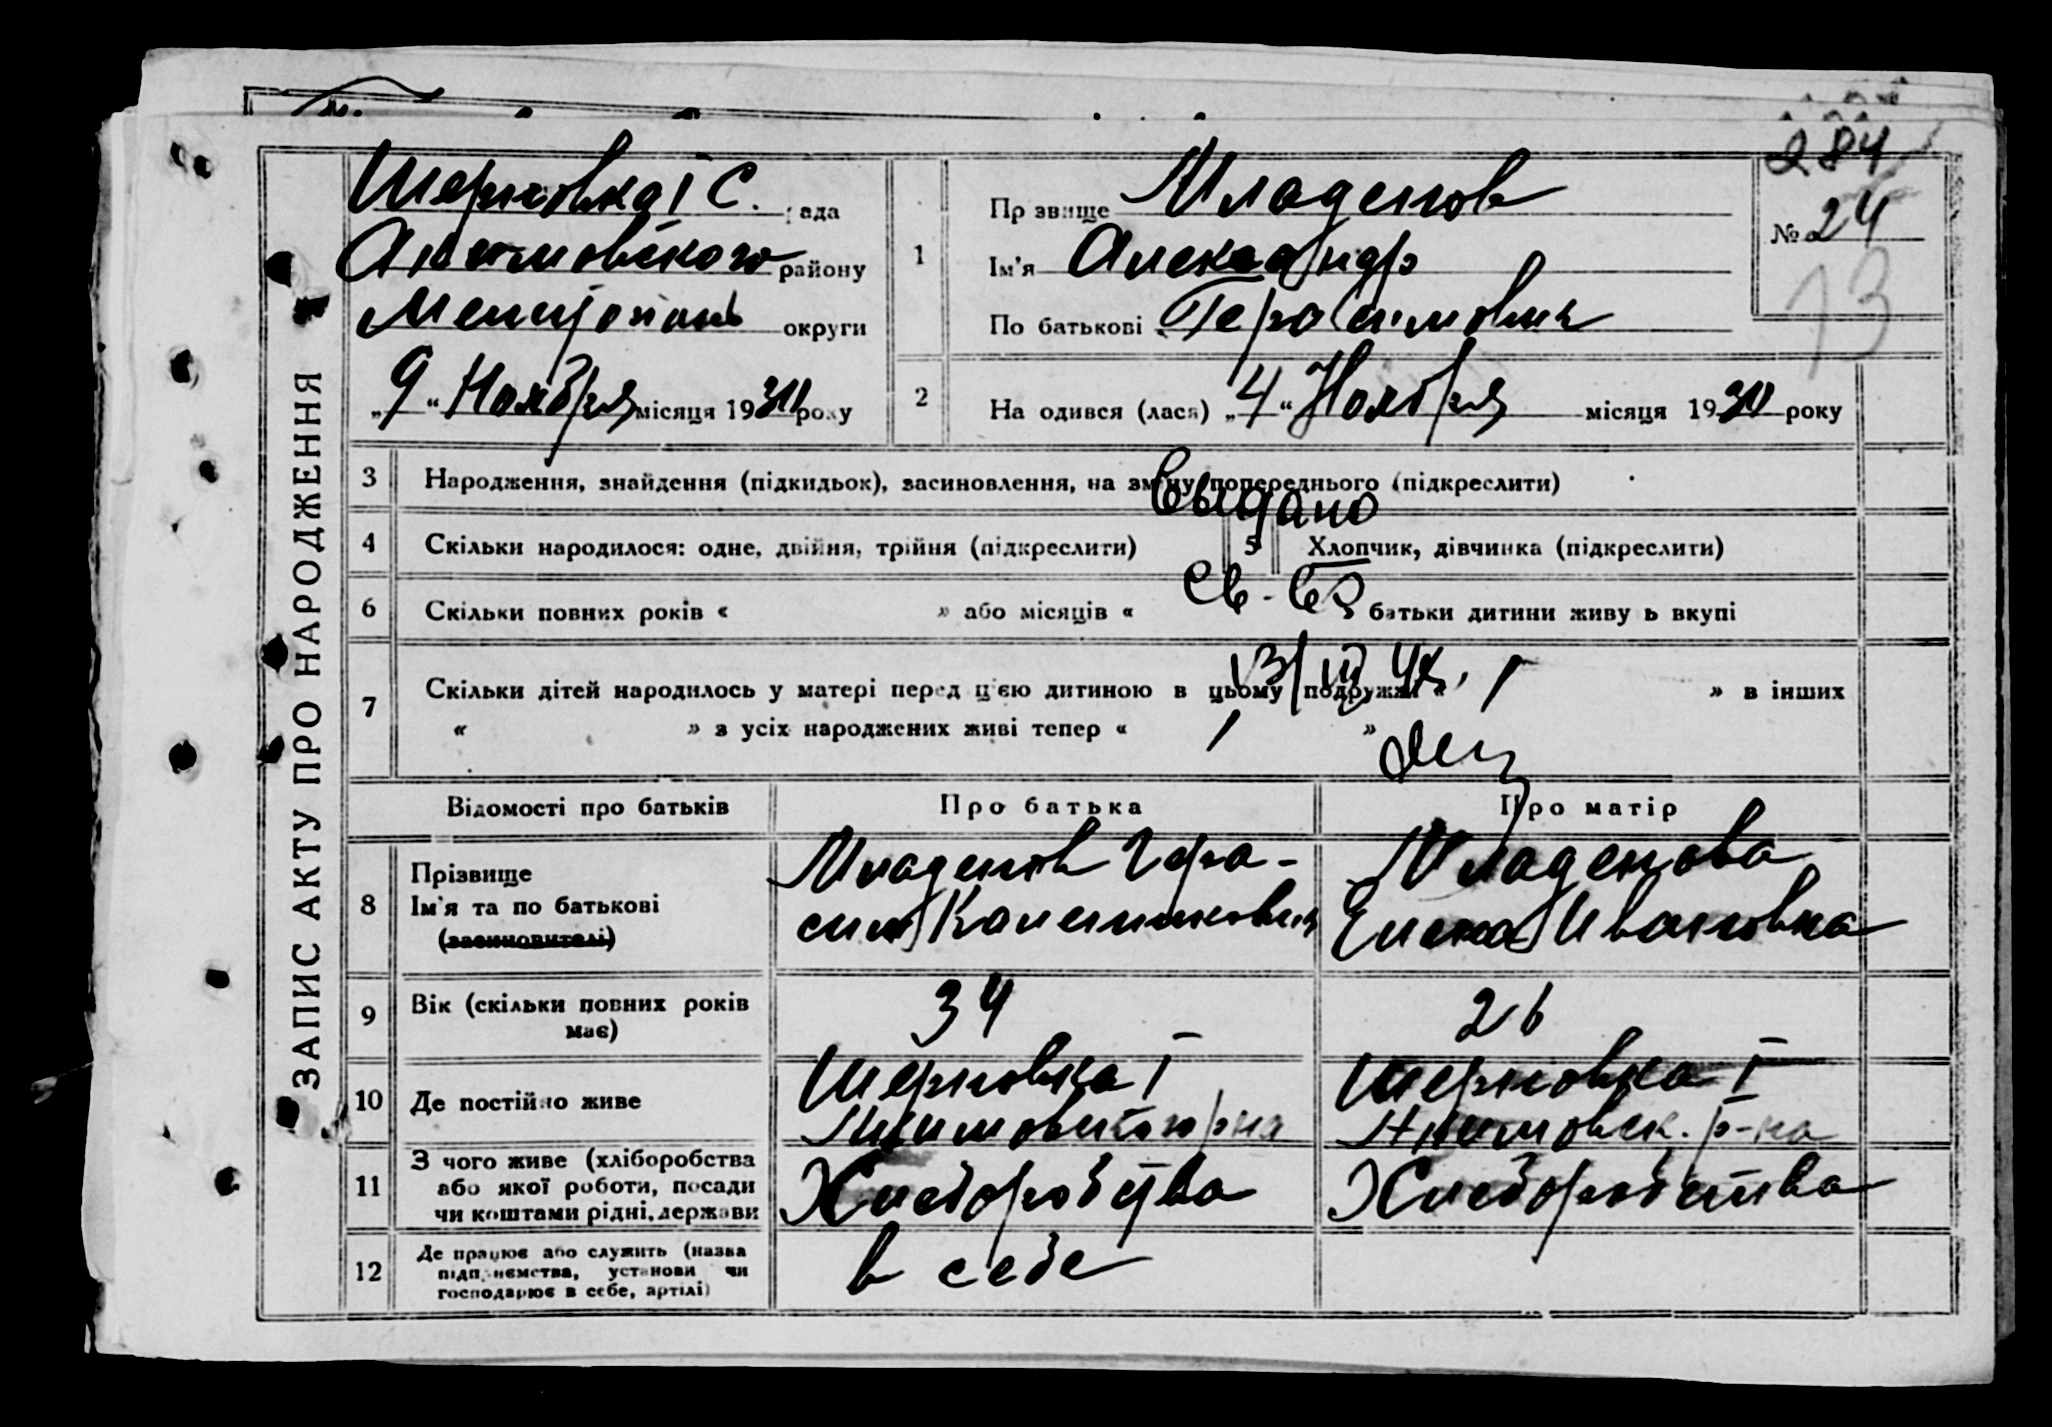 284
ЗАПИС АКТУ ПРО НАРОДЖЕННЯ
Шерновка I С. рада
Акимовского району
Мелитопань округи
„9“ Ноября місяця 1930 року
1
Прізвище Младенов
Ім'я Александр
По батькові Герасимович
№ 24
13
2
На одився (лася) „4“ Ноября місяця 1930 року
3 Народження, знайдення (підкидьок), засиновлення, на зміну попереднього (підкреслити)
Выдано
4 Скільки народилося: одне, двійня, трійня (підкреслити) 5 Хлопчик, дівчинка (підкреслити)
Св-во
6 Скільки повних років « » або місяців « батьки дитини живу ь вкупі
13/III 42.
7 Скільки дітей народилось у матері перед ц'єю дитиною в цьому подружжі « 1 » в інших
« » з усіх народжених живі тепер « 1 »
Відомості про батьків Про батька Про матір
8 Прізвище
Ім'я та по батькові
(засиновителі)
Младенов Гера-
сим
Младенова
Елена Ивановна
9 Вік (скільки повних років
має)
34 26
10 Де постійно живе
Шерновка I
Акимовского р-на
Шерновка I
Акимовск. р-на
11 З чого живе (хліборобства
або якої роботи, посади
чи коштами рідні, держави
Хлеборобства Хлеборобства
12 Де працює або служить (назва
підприємства, установи чи
господарює в себе, артілі)
в себе